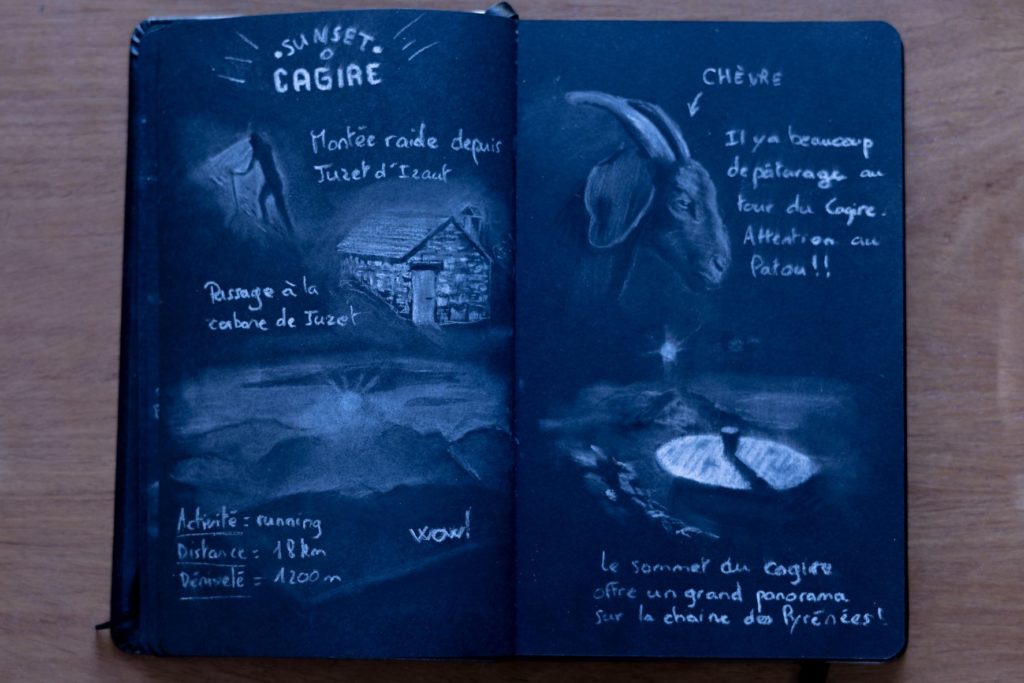 SUNSET
O
CAGIRE
Montée raide depuis
Juzet d'Izaut
Passage à la
cabane de Juzet
Activité = running
Distance = 18 km
Déniveté = 1200 m
wow!
CHÈVRE
Il y a beaucoup
de pâturage au
tour du Cagire.
Attention au
Patou!!
Le sommet du cagire
offre un grand panorama
sur la chaine des Pyrénées!